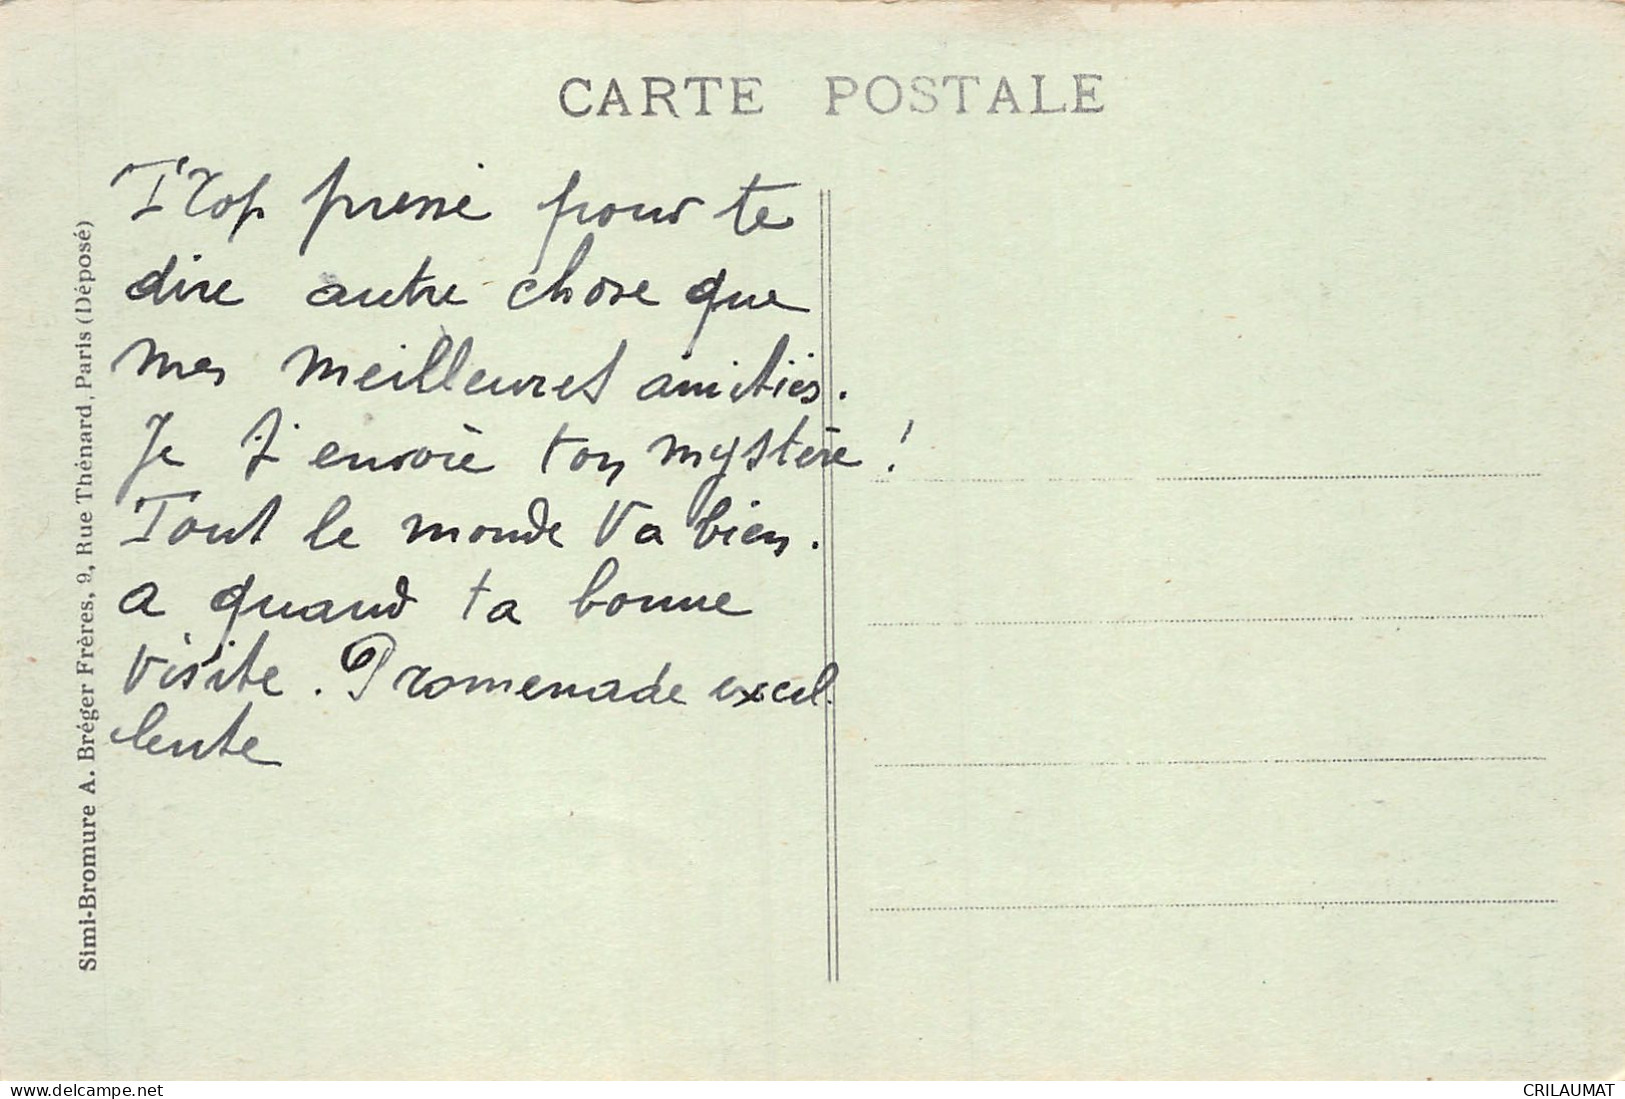 CARTE POSTALE
Trop pressé pour te
dire autre chose que
mes meilleures amitiés.
Je t'envoie ton mystère !
Tout le monde va bien.
a quand ta bonne
visite. Promenade excel.
lente
Simi-Bromure A. Bréger Frères, 9, Rue Thénard, Paris (Déposé)
www.delcampe.net
CRILAUMAT